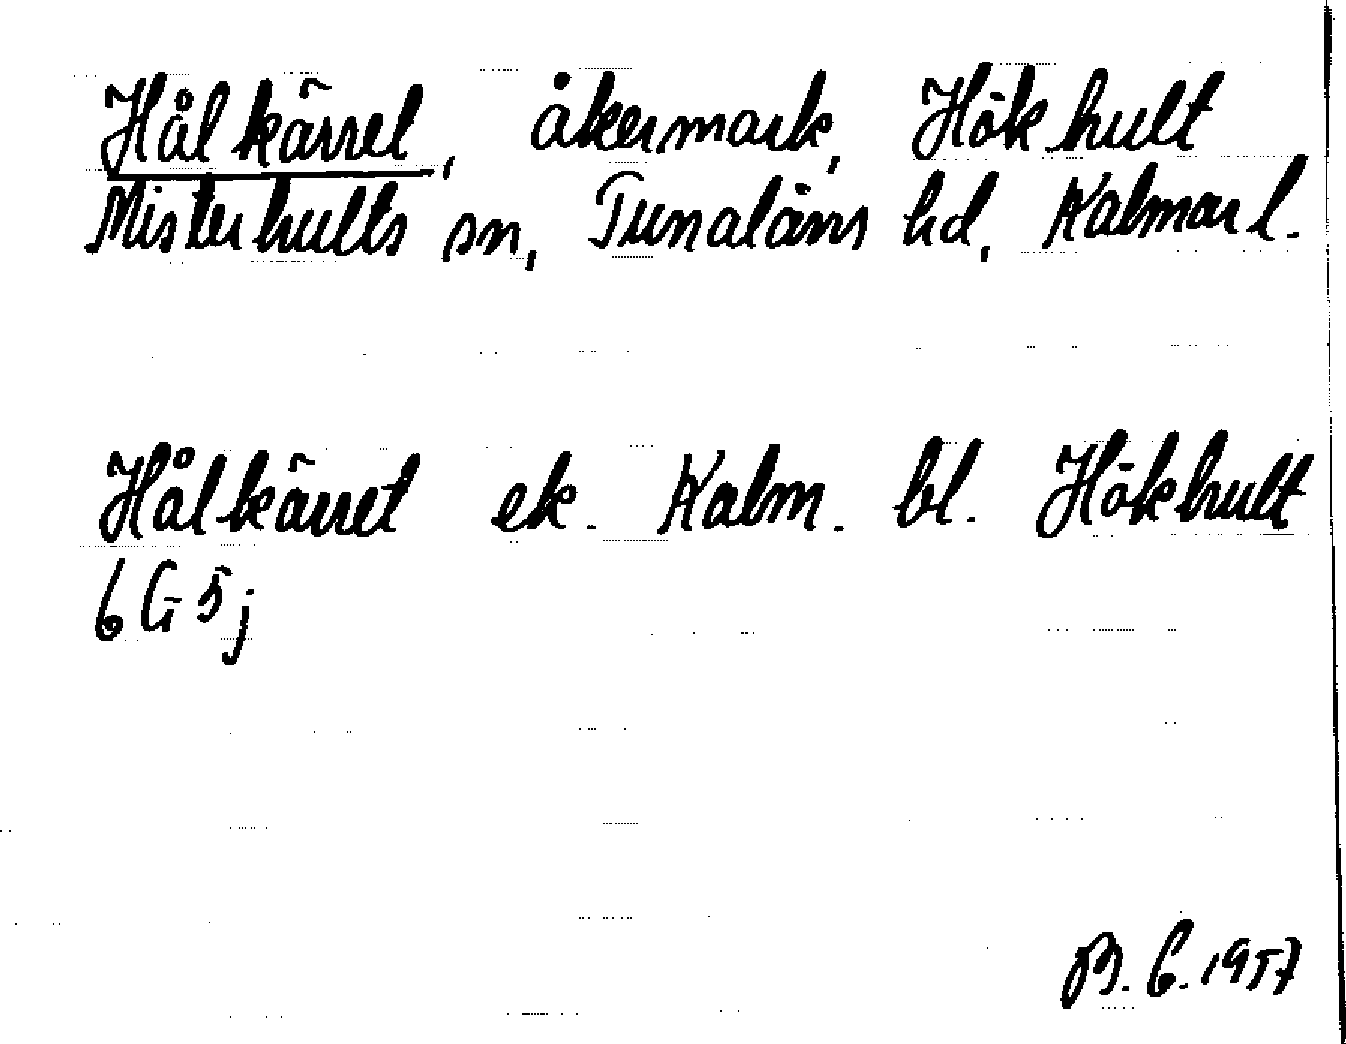 Hålkärret, åkermark, Hökhult
Misterhults sn, Tunaläns hd, Kalmar l.
Hålkärret ek. Kalm. bl. Hökhult
6G5j
B. G. 1957